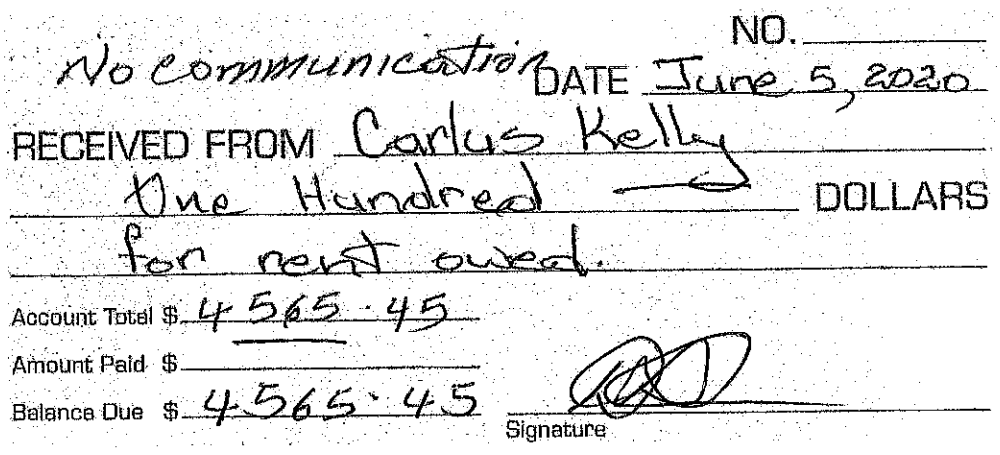 NO.
No communication DATE June 5, 2020
RECEIVED FROM Carlus Kelly
One Hundred DOLLARS
for rent owed.
Account Total $ 4565.45
Amount Paid $
Balance Due $ 4565.45
Signature